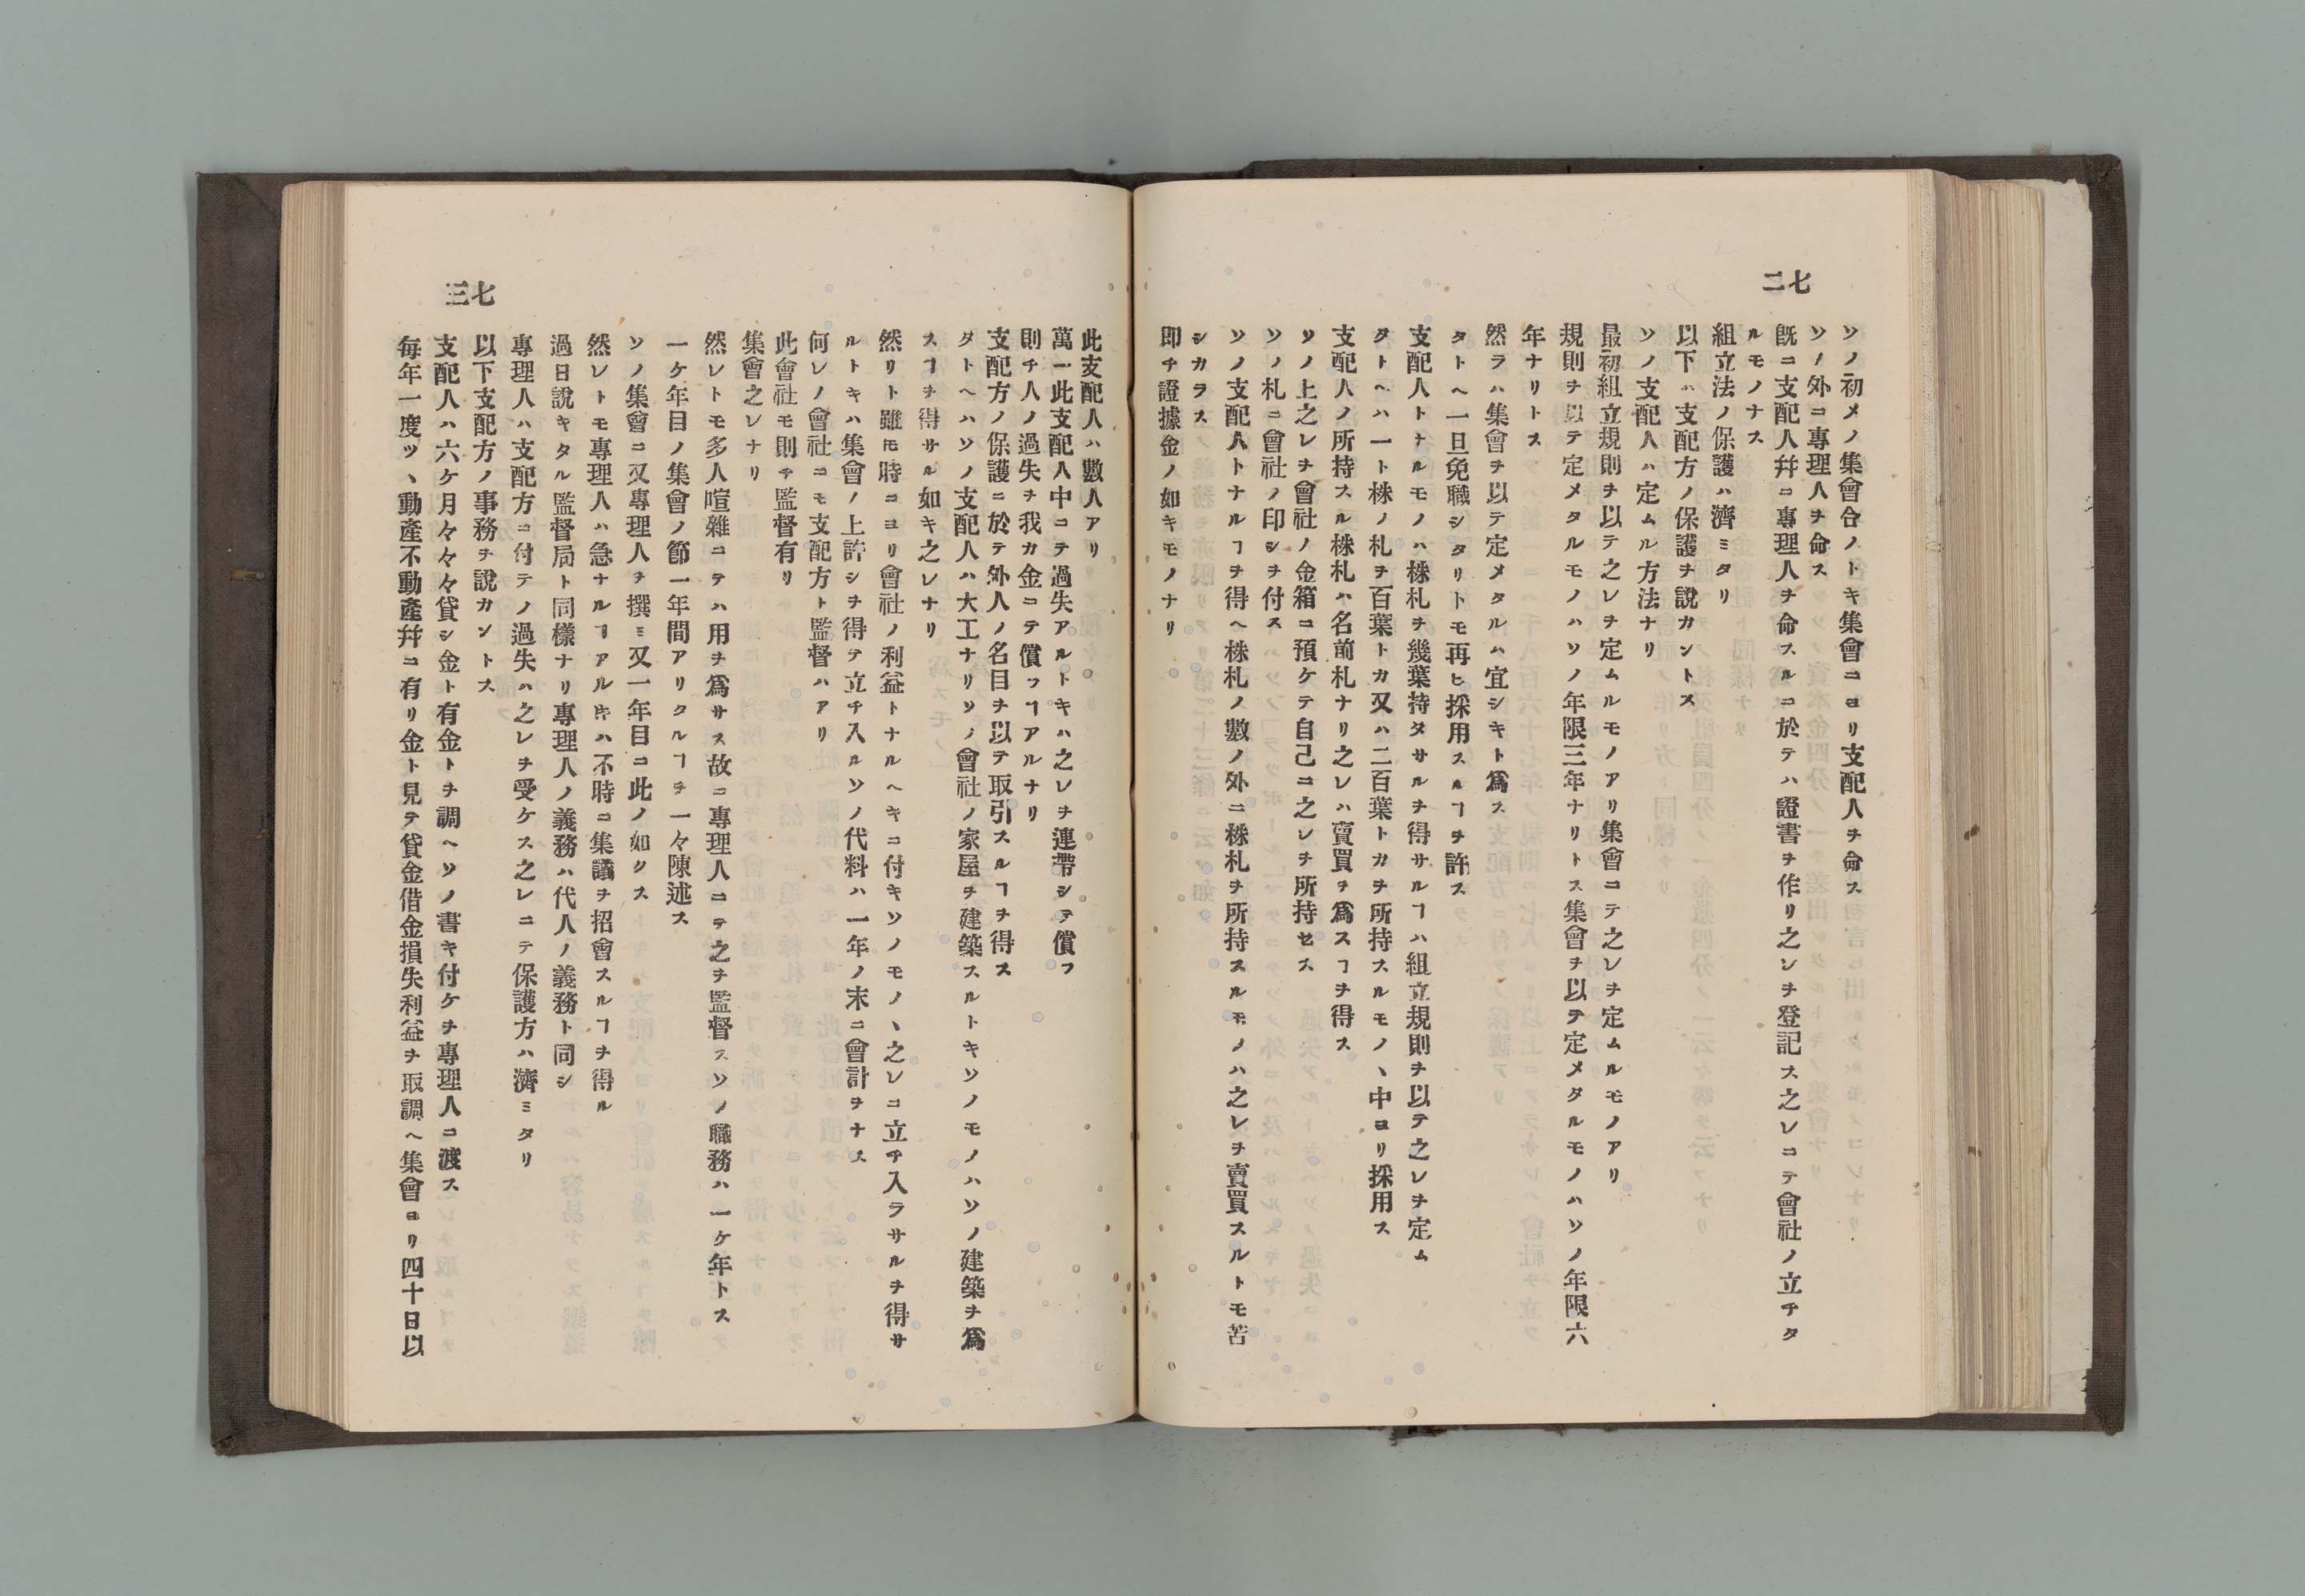 七二
ソノ初メノ集會合ノトキ集會ニヨリ支配人ヲ命ス
ソノ外ニ專理人ヲ命ス
既ニ支配人幷ニ專理人ヲ命スルニ於テハ證書ヲ作リ之レヲ登記ス之レニテ會社ノ立チタ
ルモノナス
組立法ノ保護ハ濟ミタリ
以下ハ支配方ノ保護ヲ說カントス
ソノ支配人ハ定ムル方法ナリ
最初組立規則ヲ以テ之レヲ定ムルモノアリ集會ニテ之レヲ定ムルモノアリ
規則ヲ以テ定メタルモノハソノ年限三年ナリトス集會ヲ以テ定メタルモノハソノ年限六
年ナリトス
然ラハ集會ヲ以テ定メタルハ宜シキト爲ス
タトヘ一旦免職シタリトモ再ヒ採用スルヿヲ許ス
支配人トナルモノハ株札ヲ幾葉持タサルヲ得サルヿハ組立規則ヲ以テ之レヲ定ム
タトヘハ一ト株ノ札ヲ百葉トカ又ハ二百葉トカヲ所持スルモノヽ中ヨリ採用ス
支配人ノ所持スル株札ハ名前札ナリ之レハ賣買ヲ爲スヿヲ得ス
ソノ上之レヲ會社ノ金箱ニ預ケテ自己ニ之レヲ所持セス
ソノ札ニ會社ノ印シヲ付ス
ソノ支配人トナルヿヲ得ヘ株札ノ數ノ外ニ株札ヲ所持スルモノハ之レヲ賣買スルトモ苦
シカラス
即チ證據金ノ如キモノナリ
七三
此支配人ハ數人アリ
萬一此支配人中ニテ過失アルトキハ之レヲ連帶シテ償フ
則チ人ノ過失ヲ我カ金ニテ償フヿアルナリ
支配方ノ保護ニ於テ外人ノ名目ヲ以テ取引スルヿヲ得ス
タトヘハソノ支配人ハ大工ナリソノ會社ノ家屋ヲ建築スルトキソノモノハソノ建築ヲ爲
スヿヲ得サル如キ之レナリ
然リト雖モ時ニヨリ會社ノ利益トナルヘキニ付キソノモノヽ之レニ立チ入ラサルヲ得サ
ルトキハ集會ノ上許シヲ得テ立チ入ルソノ代料ハ一年ノ末ニ會計ヲナス
何レノ會社ニモ支配方ト監督ハアリ
此會社モ則チ監督有リ
集會之レナリ
然レトモ多人喧雜ニテハ用ヲ爲サス故ニ專理人ニテ之ヲ監督スソノ職務ハ一ケ年トス
一ケ年目ノ集會ノ節一年間アリクルヿヲ一々陳述ス
ソノ集會ニ又專理人ヲ撰ミ又一年目ニ此ノ如クス
然レトモ專理人ハ急ナルヿアルキハ不時ニ集議ヲ招會スルヿヲ得ル
過日說キタル監督局ト同樣ナリ專理人ノ義務ハ代人ノ義務ト同シ
專理人ハ支配方ニ付テノ過失ハ之レヲ受ケス之レニテ保護方ハ濟ミタリ
以下支配方ノ事務ヲ說カントス
支配人ハ六ケ月々々々貸シ金ト有金トヲ調ヘソノ書キ付ケヲ專理人ニ渡ス
每年一度ツヽ動產不動產幷ニ有リ金ト見テ貸金借金損失利益ヲ取調ヘ集會ヨリ四十日以